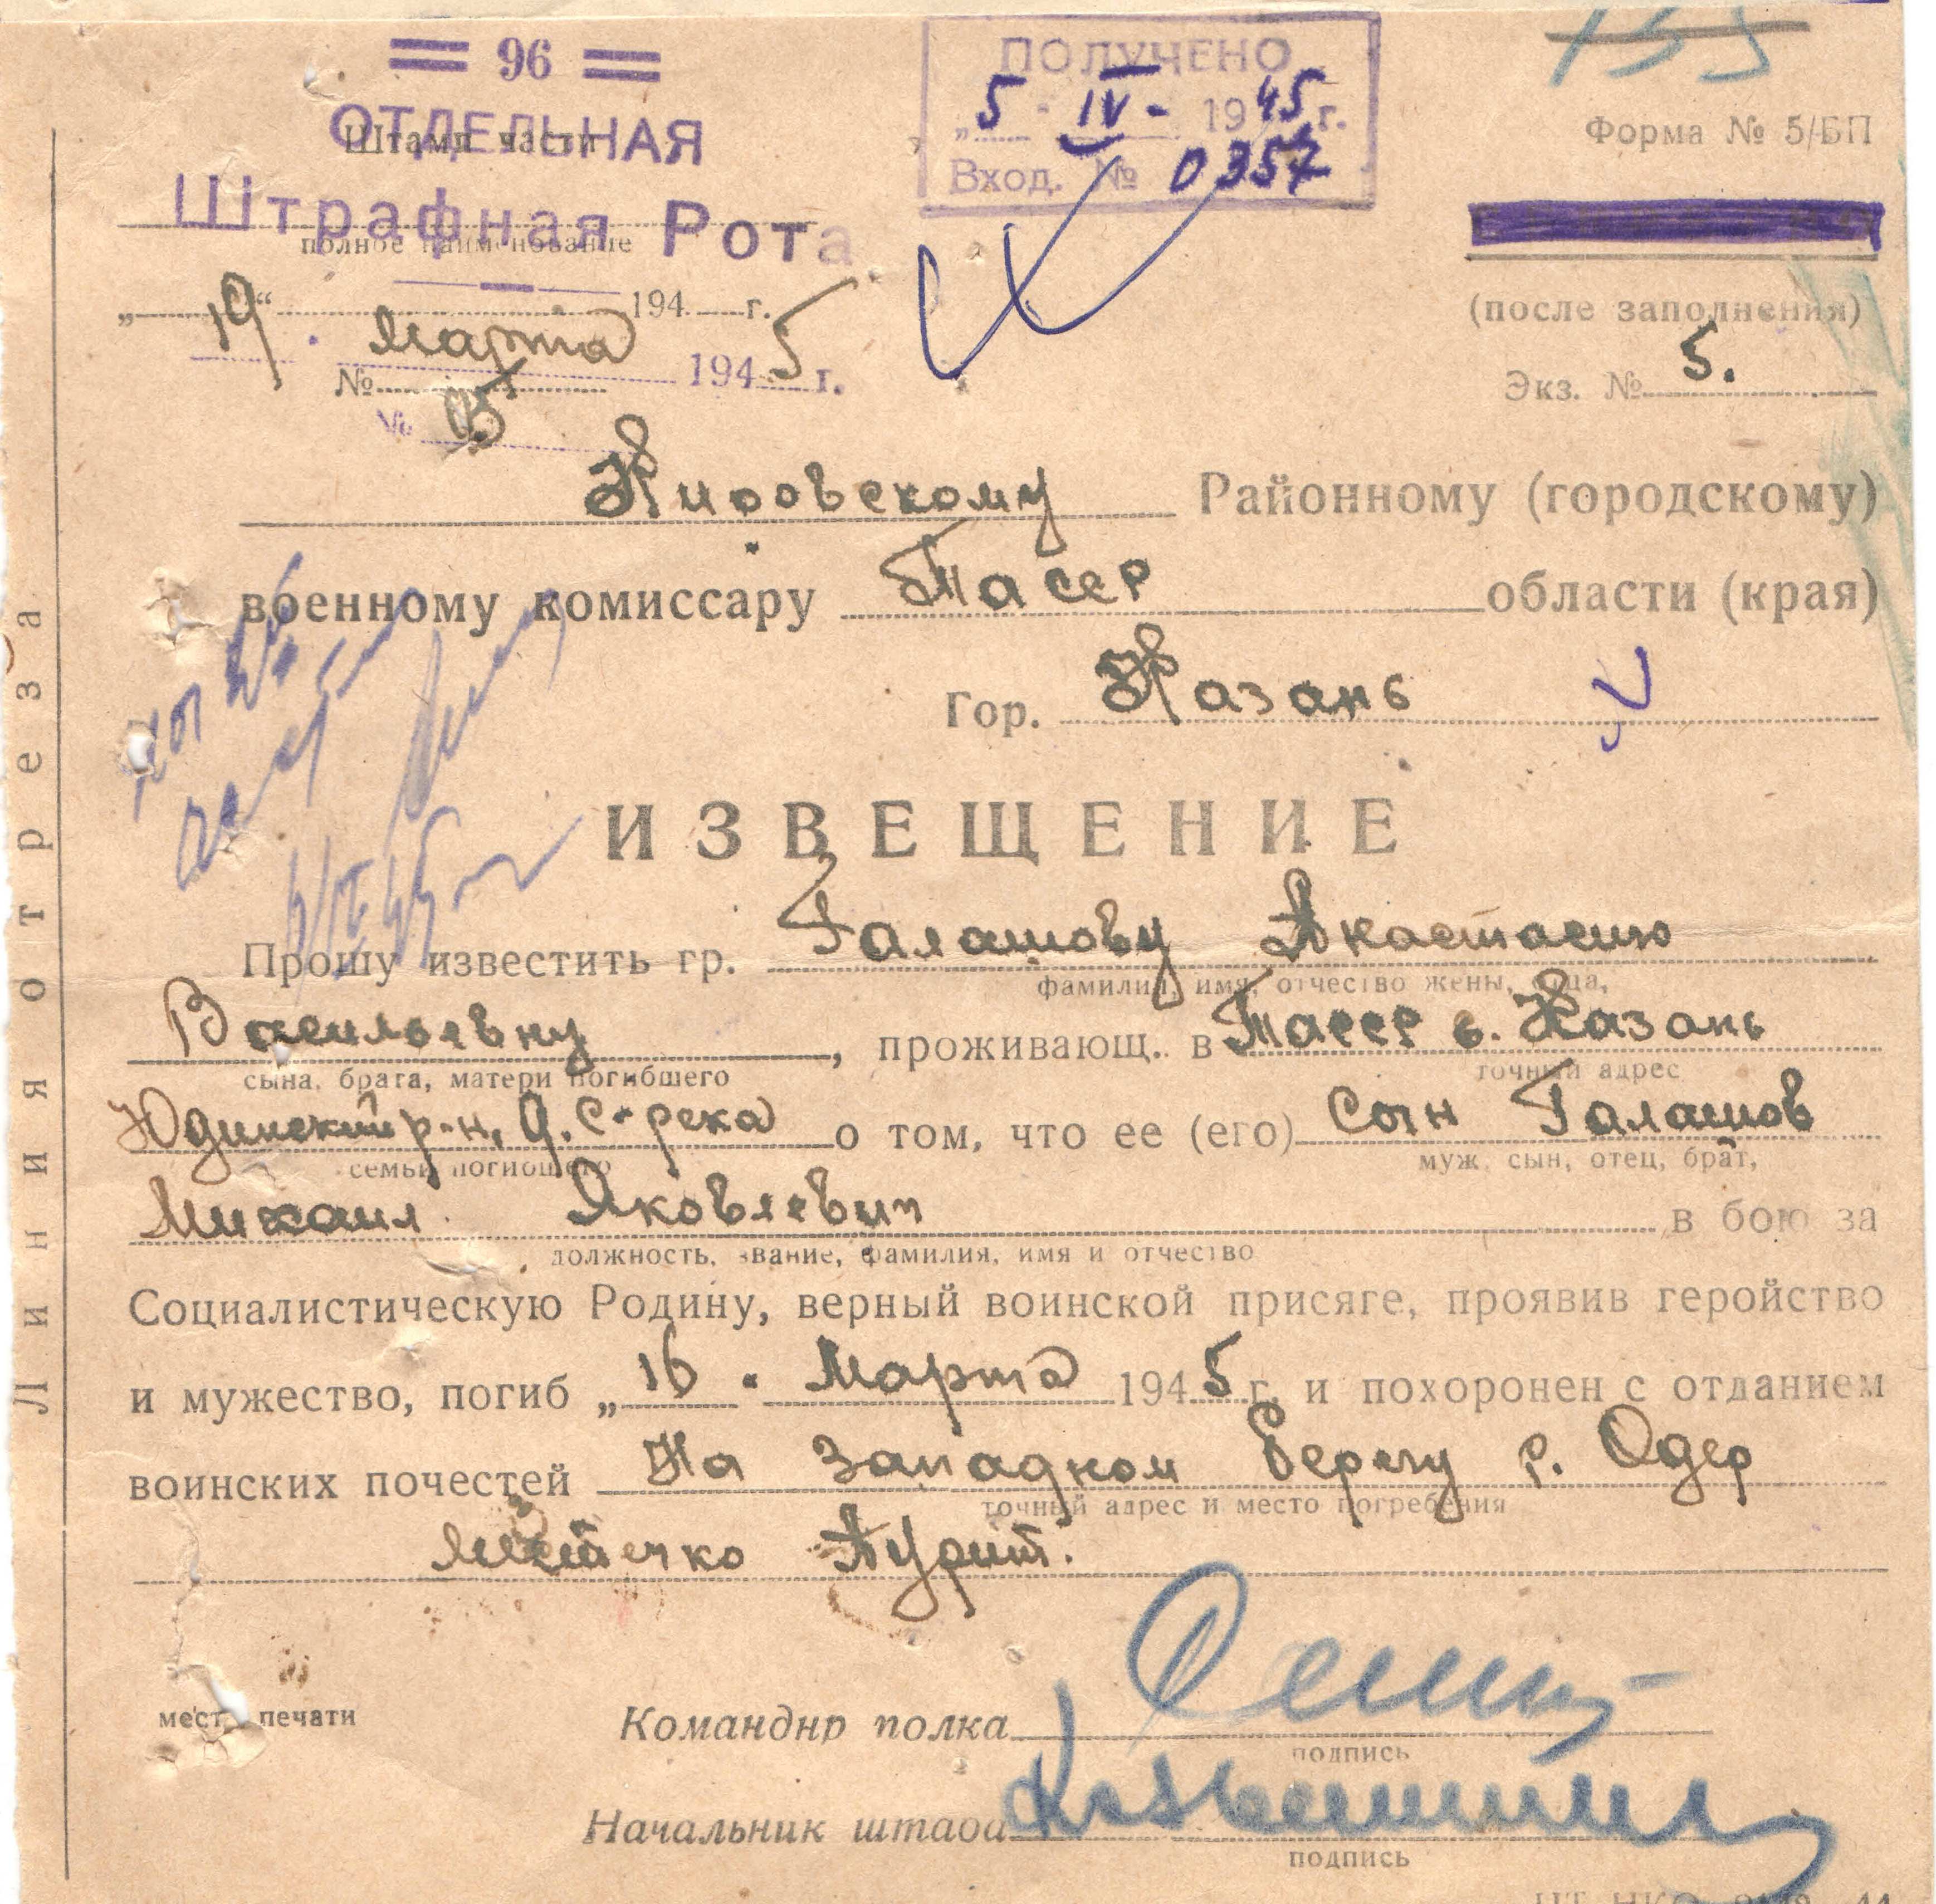 = 96 =
ОТДЕЛЬНАЯ
Штамп части
Штрафная Рота
полное наименование
ПОЛУЧЕНО
„5 - IV - 1945 г.
Вход. № 0357
Форма № 5/БП
(после заполнения)
Экз. № 5.
„ “ 194 г.
19 . Марта 1945 г.
№
№
Кировскому Районному (городскому)
военному комиссару Тасср области (края)
Гор. Казань
ИЗВЕЩЕНИЕ
Прошу известить гр. Галашову Анастасию
фамилия, имя, отчество жены, отца,
Васильевну, проживающ. в Тасср г. Казань
сына, брата, матери погибшего точный адрес
Юдинский р-н, д. С-река о том, что ее (его) Сын Галашов
семьи погибшего муж, сын, отец, брат,
Михаил Яковлевич в бою за
должность, звание, фамилия, имя и отчество
Социалистическую Родину, верный воинской присяге, проявив геройство
и мужество, погиб „16 . Марта 1945 г. и похоронен с отданием
воинских почестей На западном берегу р. Одер
точный адрес и место погребения
местечко Аурит.
место печати
Командир полка
подпись
Начальник штаба
подпись
Линия отреза